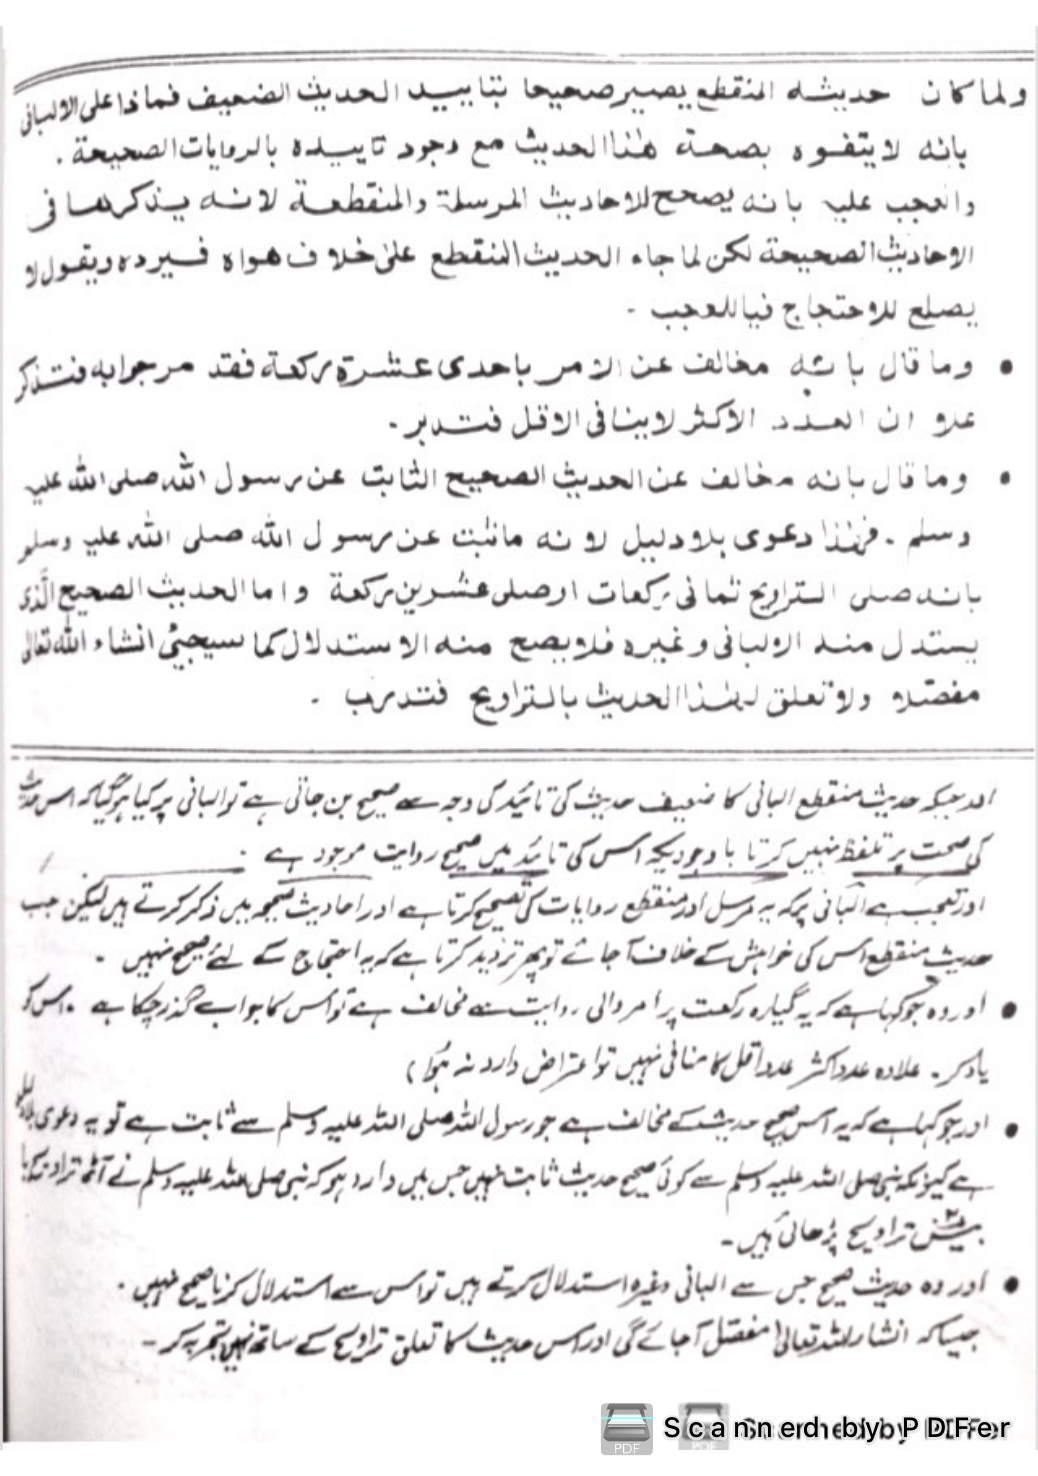 ولما كان حديثه المنقطع يصير صحيحا بتاييد الحديث الضعيف فماذا على الالبانى
بانه لا يتفوه بصحة هذا الحديث مع وجود تاييده بالروايات الصحيحة .
والعجب عليه بانه يصحح للاحاديث المرسلة والمنقطعة لانه يذكرها فى
الاحاديث الصحيحة لكن لما جاء الحديث المنقطع على خلاف هواه فيرده ويقول لا
يصلع للاحتجاج فيا للعجب -
• وما قال بانه مخالف عن الامر باحدى عشرة ركعة فقد مر جوابه فتذكر
علاو ان العدد الاكثر لا ينافى الاقل فتدبر -
• وما قال بانه مخالف عن الحديث الصحيح الثابت عن رسول الله صلى الله عليه
وسلم - فهذا دعوى بلا دليل لانه ما ثبت عن رسول الله صلى الله عليه وسلم
بانه صلى التراويح ثمانى ركعات او صلى عشرين ركعة واما الحديث الصحيح الذى
يستدل منه الالبانى وغيره فلا يصح منه الاستدلال كما سيجئ انشاء الله تعالى
مفصلا ولا تعلق لهذا الحديث بالتراويح فتدرب -
اور جبکہ حدیث منقطع البانی کا ضعیف حدیث کی تائید کی وجہ سے صحیح بن جاتی ہے تو البانی پر کیا ہوگیا کہ اس حدیث
کی صحت پر تلفظ نہیں کرتا باوجودیکہ اس کی تائید میں صحیح روایت موجود ہے -
اور تعجب ہے البانی پر کہ یہ مرسل اور منقطع روایات کی تصحیح کرتا ہے اور احادیث صحیحہ میں ذکر کرتے ہیں لیکن جب
حدیث منقطع اس کی خواہش کے خلاف آجائے تو پھر تردید کرتا ہے کہ یہ احتجاج کے لئے صحیح نہیں -
• اور وہ جو کہا ہے کہ یہ گیارہ رکعت پر امر والی روایت سے مخالف ہے تو اس کا جواب گذر چکا ہے ۔ اس کو
یاد کر - علاوہ عدد اکثر عدد اقل کا منافی نہیں تو اعتراض وارد نہ ہوا )
• اور جو کہا ہے کہ یہ اس صحیح حدیث کے مخالف ہے جو رسول اللہ صلی اللہ علیہ وسلم سے ثابت ہے تو یہ دعوی بلا دلیل
ہے کیونکہ نبی صلی اللہ علیہ وسلم سے کوئی صحیح حدیث ثابت نہیں جس میں وارد ہو کہ نبی صلی اللہ علیہ وسلم نے آٹھ تراویح یا
بیس ۲۰ تراویح پڑھائی ہیں -
• اور وہ حدیث صحیح جس سے البانی وغیرہ استدلال کرتے ہیں تو اس سے استدلال کرنا صحیح نہیں .
جیسا کہ انشاء اللہ تعالیٰ مفصل آجائے گی اور اس حدیث کا تعلق تراویح کے ساتھ نہیں تجربہ کر -
Scanned by PDFer